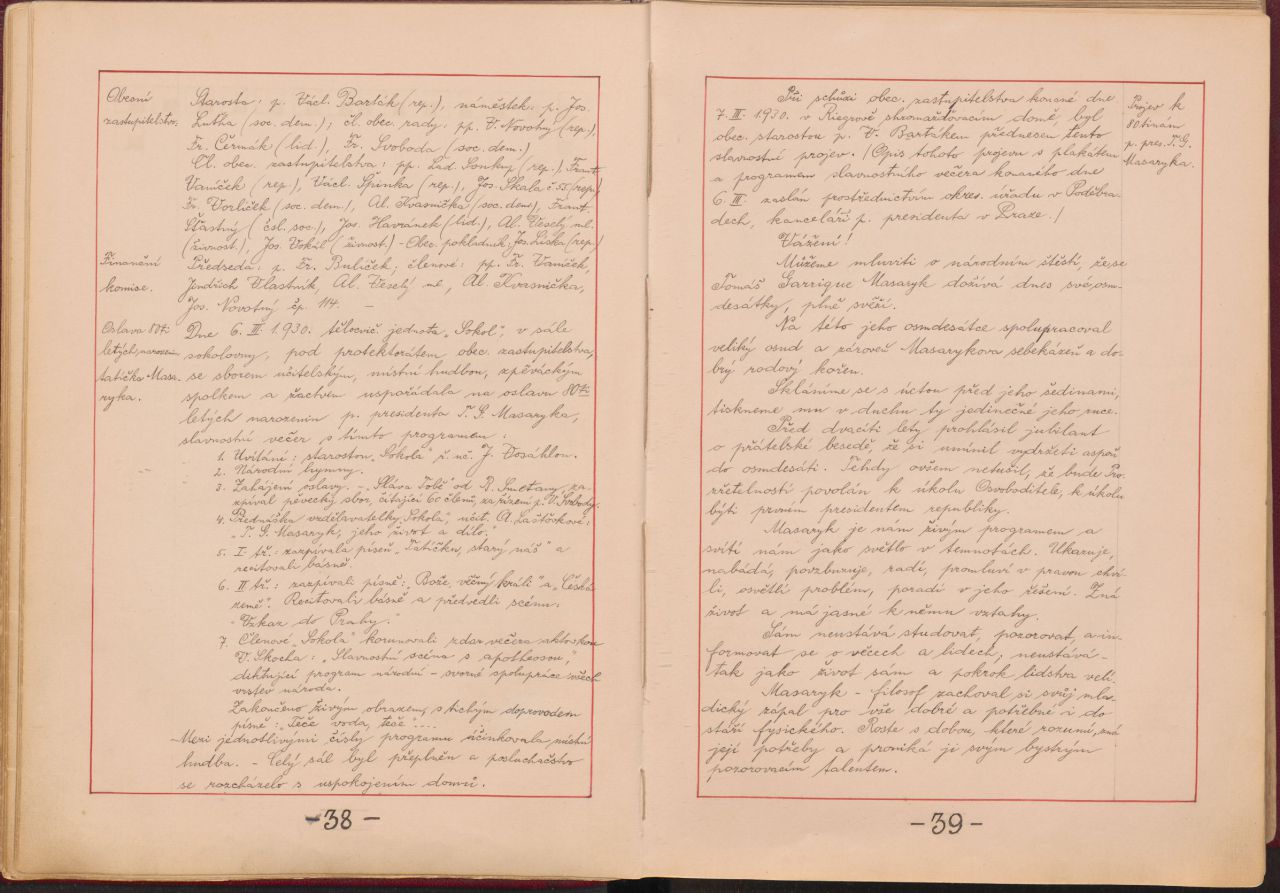 Obecní
zastupitelstvo.
Starosta: p. Václ. Barták (rep.), náměstek: p. Jos.
Lutha (soc. dem.); čl. obec. rady: pp. V. Novotný (rep.),
Fr. Čermák (lid.), Fr. Svoboda (soc. dem.)
Čl. obec. zastupitelstva: pp. Lad. Sonkup (rep.), Frant.
Vaníček (rep.), Václ. Špinka (rep.), Jos. Skala č. 55 (rep.)
Fr. Vorlíček (soc. dem.), Al. Krasnička (soc. dem.), Frant.
Šťastný (čsl. soc.), Jos. Havránek (lid.), Al. Veselý ml.
(živnost.), Jos. Vokál (živnost.) - Obec. pokladník: Jos. Liska (rep.)
Finanční
komise.
Předseda: p. Fr. Bulíček; členové: pp. Fr. Vaníček,
Jindřich Vlastník, Al. Veselý ml., Al. Kvasnička,
Jos. Novotný čp. 114. -
Oslava 80ti
letých narozenin
tatíčka Masa-
ryka.
Dne 6. III. 1930. tělocvič. jednota „Sokol", v sále
sokolovny, pod protektorátem obec. zastupitelstva,
se sborem učitelským, místní hudbou, zpěváckým
spolkem a žactvem uspořádala na oslavu 80ti
letých narozenin p. presidenta T. G. Masaryka,
slavnostní večer s tímto programem:
1. Uvítání: starostou „Sokola" ř. uč. J. Dosáhlom.
2. Národní hymny.
3. Zahájení oslavy. - „Sláva Tobě" od R. Smetany, za-
zpíval pěvecký sbor, čítající 60 členů, za řízení p. V. Svobody.
4. Přednáška vzdělavatelky „Sokola", učit. A. Laštovkové:
„T. G. Masaryk, jeho život a dílo."
5. I. tř.: zazpívala píseň „Tatíčku, starý náš" a
recitovali básně.
6. II. tř.: zazpívali písně: „Bože, věčný králi" a „Česká
země". Recitovali básně a předvedli scénu:
„Vzkaz do Prahy."
7. Členové „Sokola" korunovali zdar večera aktovkou
V. Skocha: „Slavnostní scéna s apotheosou,"
diktující program národní - svorné spolupráce všech
vrstev národa.
Zakončeno živým obrazem, s tichým doprovodem
písně: „Teče voda, teče"....
Mezi jednotlivými čísly programu účinkovala místní
hudba. - Celý sál byl přeplněn a posluchačstvo
se rozcházelo s uspokojením domů.
- 38 -
Projev k
80tinám
p. pres. T. G.
Masaryka.
Při schůzi obec. zastupitelstva konané dne
7. III. 1930. v Riegrově shromažďovacím domě, byl
obec. starostou p. V. Bartákem přednesen tento
slavnostní projev. /Opis tohoto projevu s plakátem
a programem slavnostního večera konaného dne
6. III. zaslán prostřednictvím okres. úřadu v Poděbra-
dech, kanceláři p. presidenta v Praze./
Vážení!
Můžeme mluviti o národním štěstí, že se
Tomáš Garrigue Masaryk dožívá dnes své osm-
desátky, plné svěží.
Na této jeho osmdesátce spolupracoval
veliký osud a zároveň Masarykova sebekázeň a do-
brý rodový kořen.
Skláníme se s úctou před jeho šedinami,
tiskneme mu v duchu ty jedinečné jeho ruce.
Před dvaciti lety prohlásil jubilant
o přátelské besedě, že si umínil vydržeti aspoň
do osmdesáti. Tehdy ovšem netušil, že bude Pro-
zřetelností povolán k úkolu Osvoboditele, k úkolu
býti prvním presidentem republiky.
Masaryk je nám živým programem a
svítí nám jako světlo v temnotách. Ukazuje,
nabádá, povzbuzuje, radí, promluví v pravou chví-
li, osvětlí problém, poradí v jeho řešení. Zná
život a má jasné k němu vztahy.
Sám neustává studovat, pozorovat, a in-
formovat se o věcech a lidech, neustává -
tak jako život sám a pokrok lidstva velí.
Masaryk - filosof zachoval si svůj mla-
dický zápal pro vše dobré a potřebné i do
stáří fysického. Roste s dobou, které rozumí, zná
její potřeby a proniká ji svým bystrým
pozorovacím talentem.
- 39 -